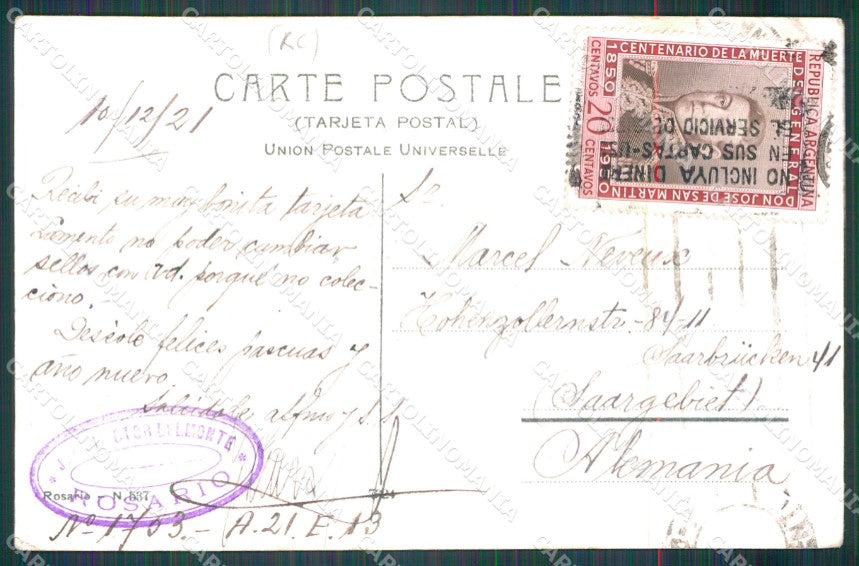 (RC)
CARTE POSTALE
(TARJETA POSTAL)
UNION POSTALE UNIVERSELLE
10/12/21
Recibí su muy bonita tarjeta
Lamento no poder cambiar
sellos con Vd. porque no colec-
ciono.
Deséole felices pascuas y
año nuevo
Sr
Marcel Neveux
Hohenzollernstr. 84-11
Saarbrücken 41
(Saargebiet)
Alemania
REPUBLICA ARGENTINA
CENTENARIO DE LA MUERTE
DEL GENERAL
DON JOSE DE SAN MARTIN
1850
1950
20 CENTAVOS
CENTAVOS
NO INCLUYA DINERO
EN SUS CARTAS-USE
EL SERVICIO DE
DELMONTE
ROSARIO
Rosario - N. 537
724
Nº 1703.- A.21.E.13
CARTOLINOMANIA